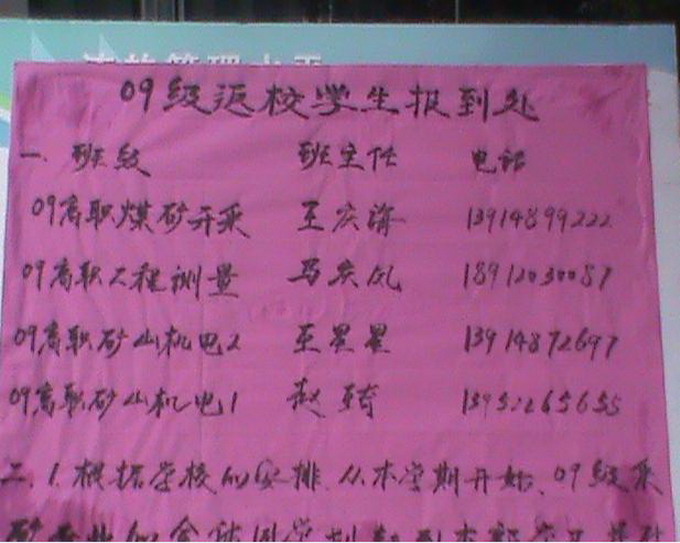 09级返校学生报到处
一、班级 班主任 电话
09高职煤矿开采 王庆海 13914899222
09高职工程测量 马庆凤 18912030087
09高职矿山机电2 王星星 13914872697
09高职矿山机电1 赵 13952265655
二、1.根据学校的安排,从本学期开始、09级采